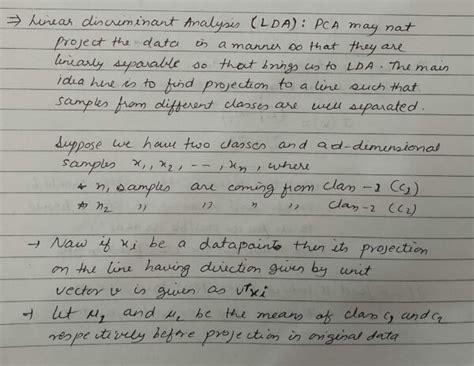 ⇒ Linear discriminant Analysis (LDA): PCA may not
project the data in a manner so that they are
linearly separable so that brings us to LDA. The main
idea here is to find projection to a line such that
samples from different classes are well separated.
Suppose we have two classes and a d-dimensional
samples x₁, x₂, --, xₙ, where
* n₁ samples are coming from class -1 (C₁)
* n₂ ,, ,, ,, ,, class-2 (C₂)
→ Now if xᵢ be a datapoint then its projection
on the line having direction given by unit
vector v is given as vᵀxᵢ
→ let μ₁ and μ₂ be the means of class C₁ and C₂
respectively before projection in original data